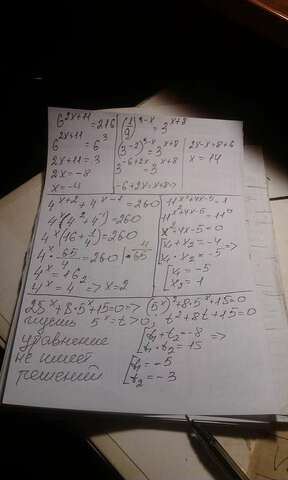 6^{2x+11} = 216
6^{2x+11} = 6^3
2x+11 = 3
2x = -8
x = -4
3^{-6+2x} = 3^{x+8}
-6+2x = x+8 =>
2x-x = 8+6
x = 14
4^{x+2} + 4^{x-1} = 260
4^x(4^2+4^{-1}) = 260
4^x(16+1/4) = 260
4^x · 65/4 = 260 | · 4/65
4^x = 16
4^x = 4^2 => x = 2
11^{x^2+4x-5} = 1
11^{x^2+4x-5} = 11^0
x^2+4x-5 = 0
x_1 = -5
x_2 = 1
25^x+8·5^x+15=0 => (5^x)^2+8·5^x+15=0
пусть 5^x = t > 0, t^2+8t+15=0
уравнение
не имеет
решений
[t_1+t_2 = -8
t_1·t_2 = 15 =>
[t_1 = -5
t_2 = -3